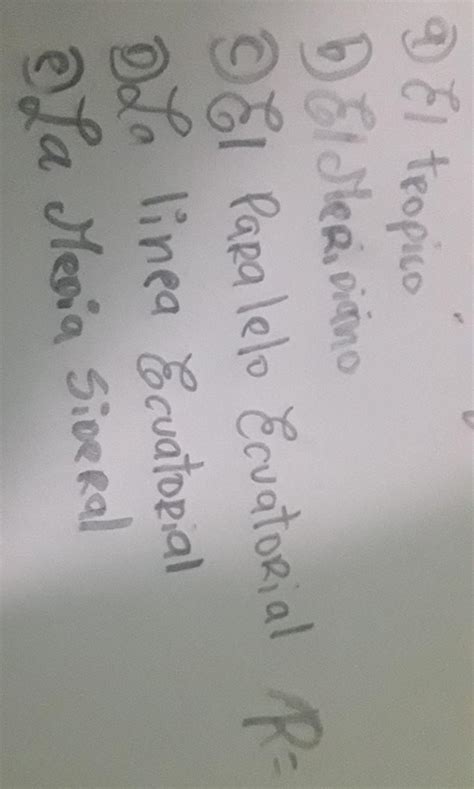 a) El tropico
b) El MeRiDiano
c) El PaRalelo EcuatoRial R=
D) La linea EcuatoRial
e) La Media SiDeRal